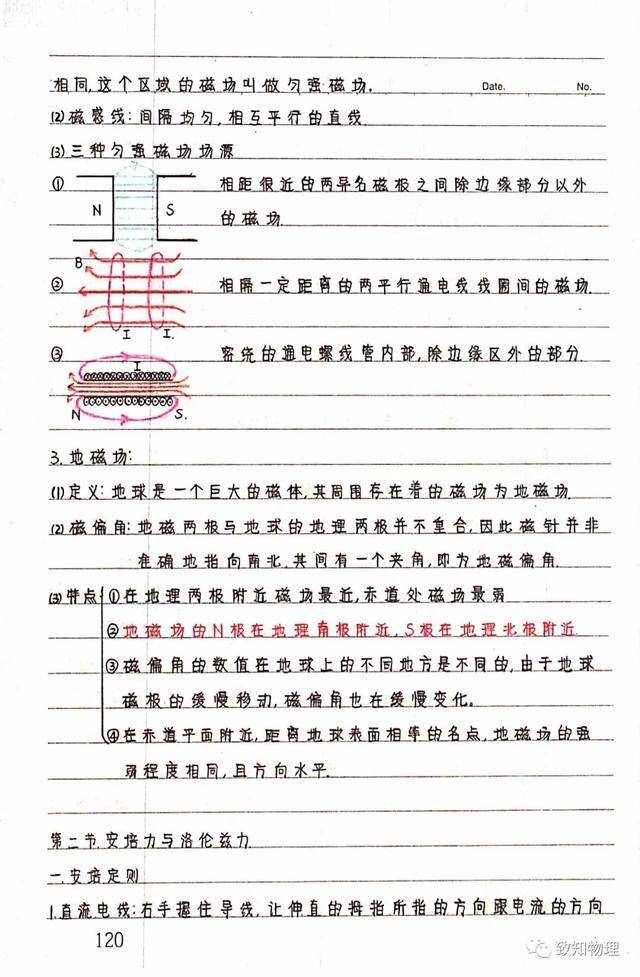 相同,这个区域的磁场叫做匀强磁场.
Date. No.
(2)磁感线:间隔均匀,相互平行的直线
(3)三种匀强磁场场源
① N S 相距很近的两异名磁极之间除边缘部分以外
的磁场.
B
② 相隔一定距离的两平行通电线线圈间的磁场.
I I.
③ I 密绕的通电螺线管内部,除边缘区外的部分.
N S.
3.地磁场:
(1)定义:地球是一个巨大的磁体,其周围存在着的磁场为地磁场.
(2)磁偏角:地磁两极与地球的地理两极并不重合,因此磁针并非
准确地指向南北,其间有一个夹角,即为地磁偏角.
(3)特点 ①在地理两极附近磁场最近,赤道处磁场最弱
②地磁场的N极在地理南极附近,S极在地理北极附近.
③磁偏角的数值在地球上的不同地方是不同的,由于地球
磁极的缓慢移动,磁偏角也在缓慢变化。
④在赤道平面附近,距离地球表面相等的各点,地磁场的强
弱程度相同,且方向水平.
第二节.安培力与洛伦兹力
一.安培定则
1.直流电线:右手握住导线,让伸直的拇指所指的方向跟电流的方向
120
致知物理